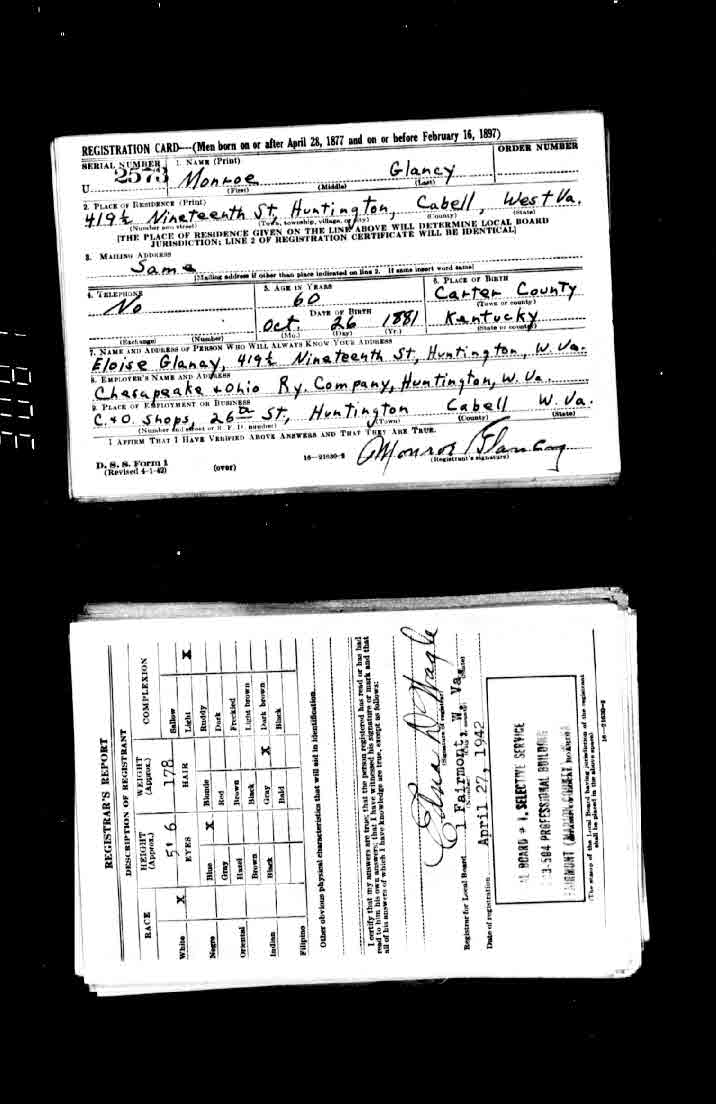 REGISTRATION CARD—(Men born on or after April 28, 1877 and on or before February 16, 1897)
SERIAL NUMBER 1. NAME (Print) ORDER NUMBER
U 2573 Monroe Glancy
(First) (Middle) (Last)
2. PLACE OF RESIDENCE (Print)
419½ Nineteenth St, Huntington, Cabell, West Va.
(Number and street) (Town, township, village, or city) (County) (State)
[THE PLACE OF RESIDENCE GIVEN ON THE LINE ABOVE WILL DETERMINE LOCAL BOARD
JURISDICTION; LINE 2 OF REGISTRATION CERTIFICATE WILL BE IDENTICAL]
3. MAILING ADDRESS
Same
[Mailing address if other than place indicated on line 2. If same insert word same]
4. TELEPHONE 5. AGE IN YEARS 6. PLACE OF BIRTH
No 60 Carter County
(Town or county)
DATE OF BIRTH
Oct. 26 1881 Kentucky
(Exchange) (Number) (Mo.) (Day) (Yr.) (State or country)
7. NAME AND ADDRESS OF PERSON WHO WILL ALWAYS KNOW YOUR ADDRESS
Eloise Glancy, 419½ Nineteenth St, Huntington, W. Va.
8. EMPLOYER'S NAME AND ADDRESS
Chesapeake & Ohio Ry. Company, Huntington, W. Va.
9. PLACE OF EMPLOYMENT OR BUSINESS
C. & O. Shops, 26th St, Huntington Cabell W. Va.
(Number and street or R. F. D. number) (Town) (County) (State)
I AFFIRM THAT I HAVE VERIFIED ABOVE ANSWERS AND THAT THEY ARE TRUE.
D. S. S. Form 1
(Revised 4-1-42) (over) 16—21630-2 Monroe Glancy
(Registrant's signature)
REGISTRAR'S REPORT
DESCRIPTION OF REGISTRANT
RACE HEIGHT (Approx.) WEIGHT (Approx.) COMPLEXION
5' 6 178
White X EYES HAIR Sallow
Light X
Negro Blue X Blonde Ruddy
Gray Red Dark
Oriental Hazel Brown Freckled
Brown Black Light brown
Indian Black Gray X Dark brown
Bald Black
Filipino
Other obvious physical characteristics that will aid in identification
I certify that my answers are true; that the person registered has read or has had
read to him his own answers; that I have witnessed his signature or mark and that
all of his answers of which I have knowledge are true, except as follows:
Edna D. Wagle
(Signature of registrar)
Registrar for Local Board 1 Fairmont, W. Va.
(Number) (City or county) (State)
Date of registration April 27, 1942
BOARD # 1, SELECTIVE SERVICE
3-504 PROFESSIONAL BUILDING
FAIRMONT (MARION COUNTY)
(The stamp of the Local Board having jurisdiction of the registrant
shall be placed in the above space)
16—21630-2